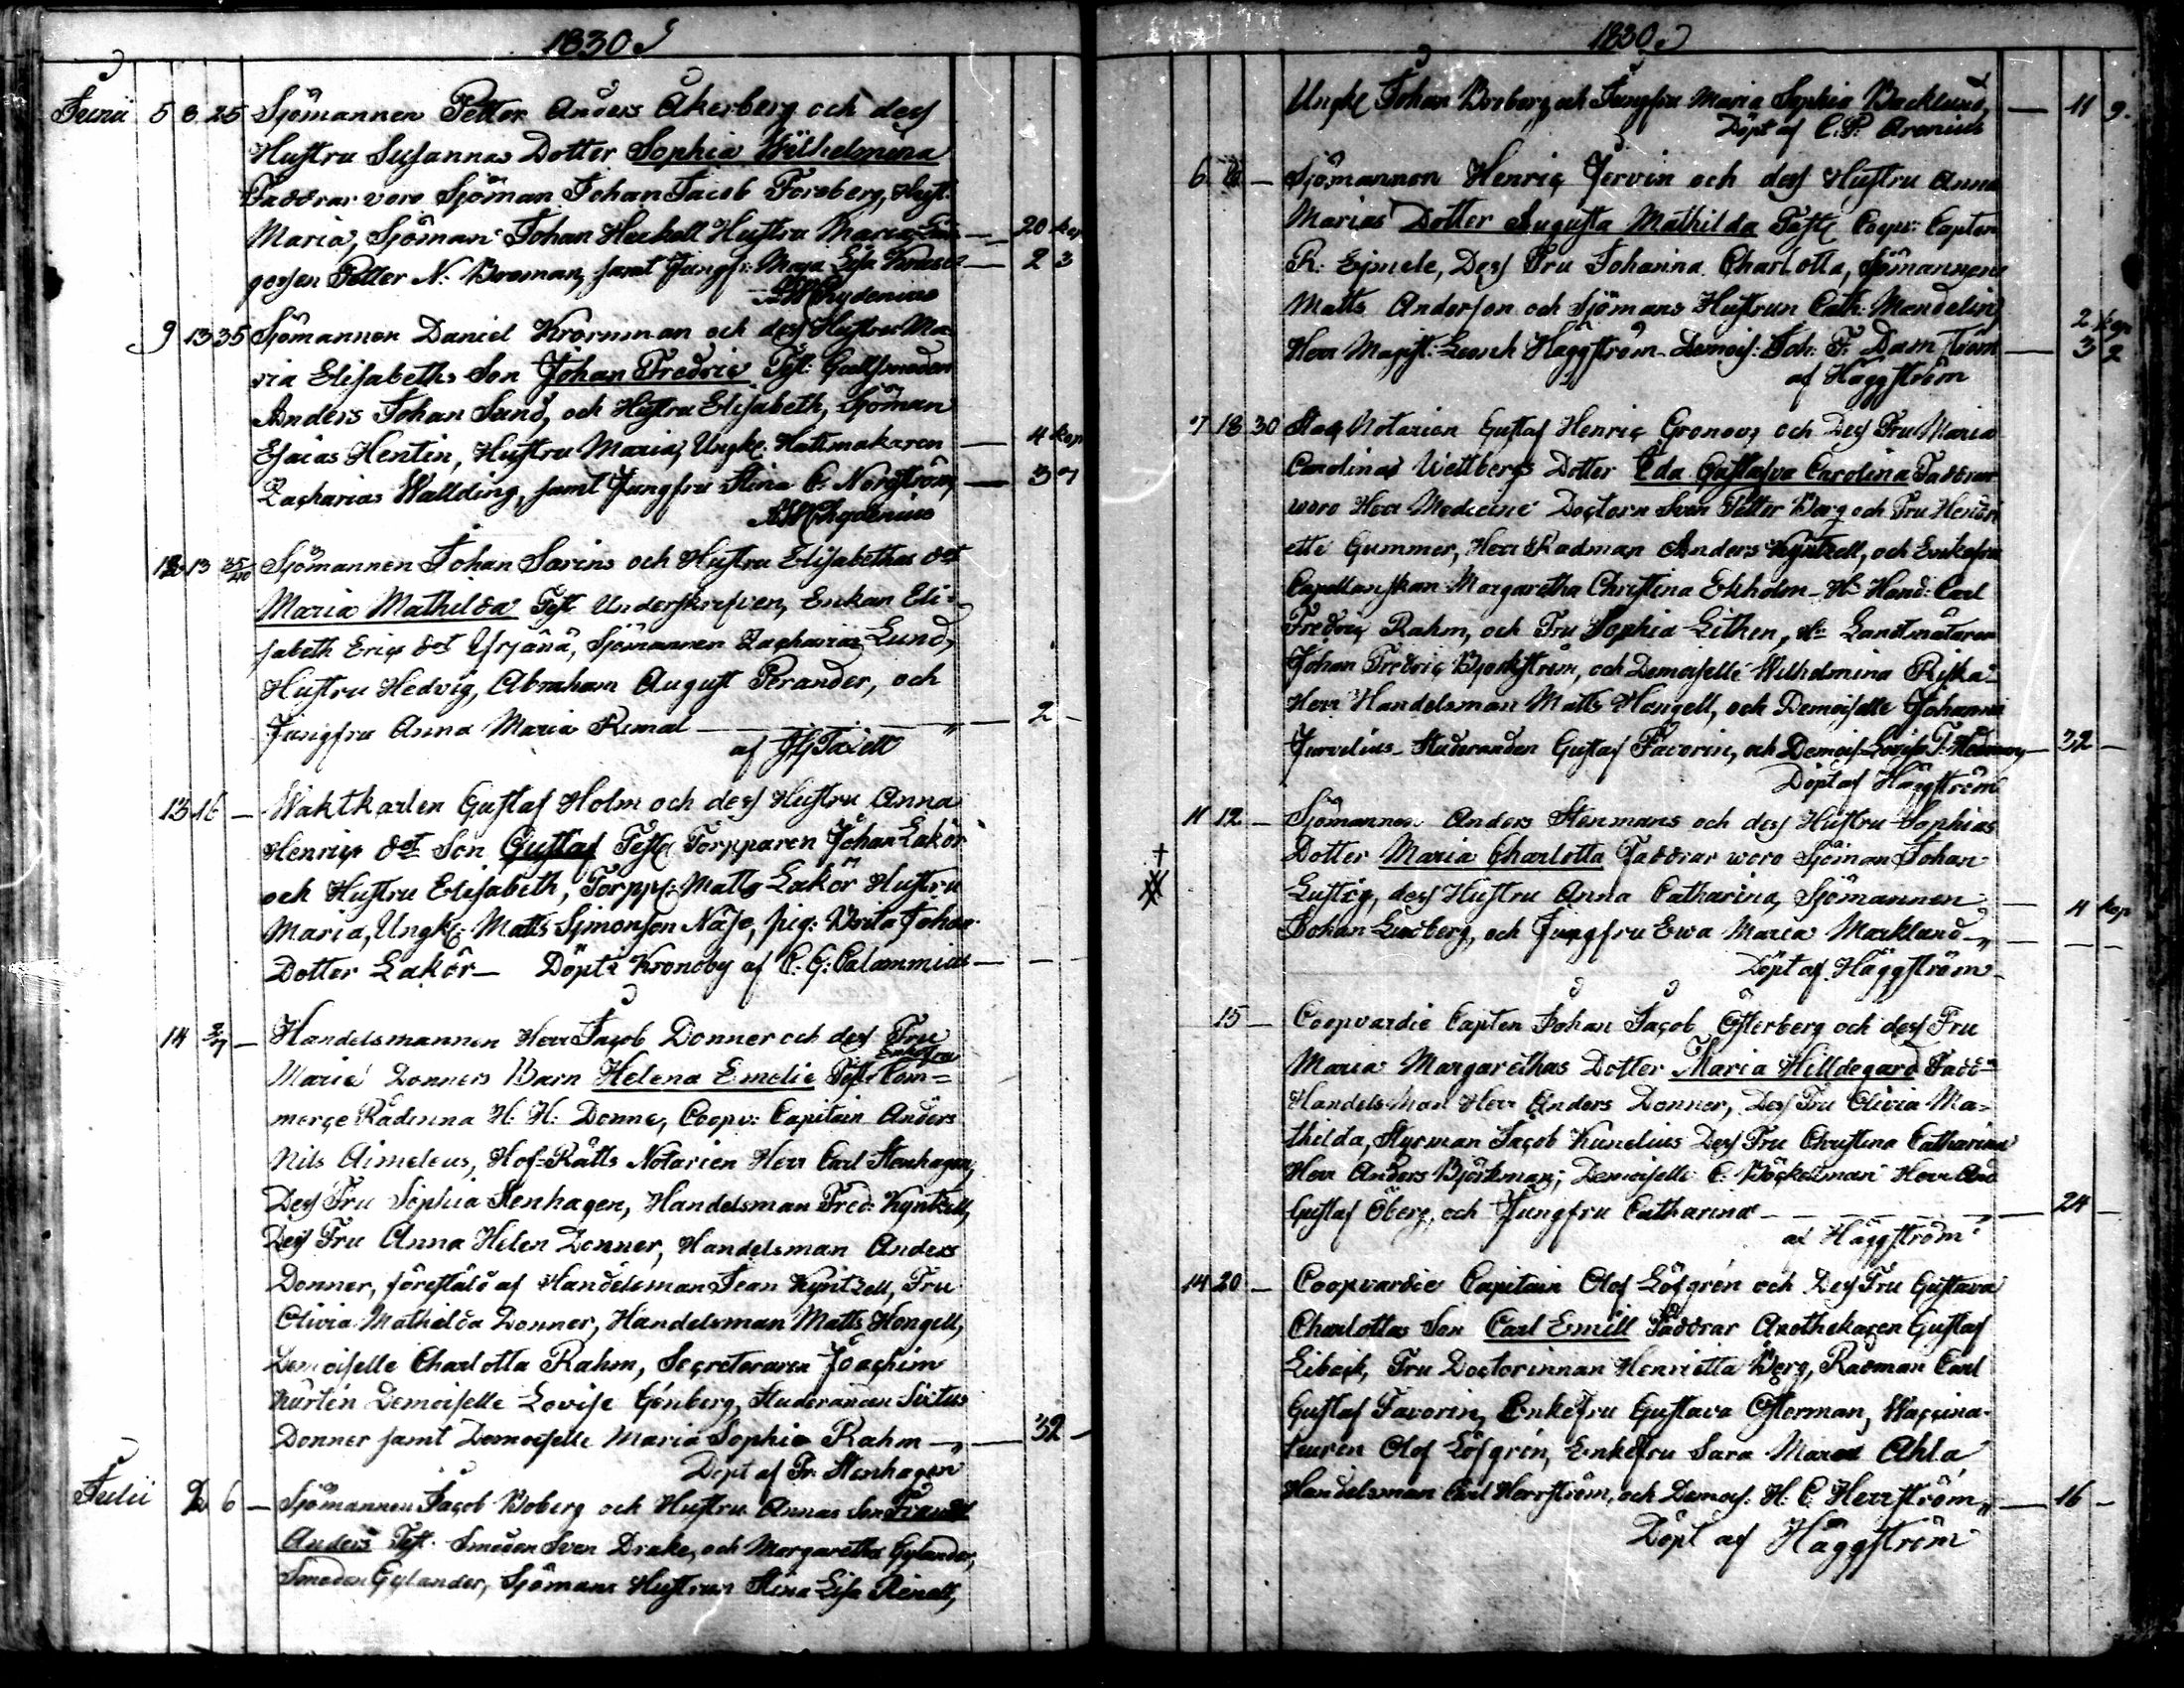 1830
Junii 5 8 25 Sjömannen Petter Anders Åkerberg och dess
Hustru Susannas Dotter Sophia Wilhelmina
Faddrar voro Sjöman Johan Jacob Forsberg, Hust.
Maria, Sjöman Johan Heikell Hustru Maria, — 20 kop
Petter N. Broman, samt Jungfr. Maja Lisa — 2 3
Chydenius
9 13 35 Sjömannen Daniel Kronman och dess Hustru Ma-
ria Elisabeths Son Johan Fredric Test: Guldsmeden
Anders Johan Sund, och Hustru Elisabeth, Sjöman
Esaias Hentin, Hustru Maria, Ungk. Hattmakaren — 4 kop
Zacharias Wallding, samt Jungfru Stina C. Nordström — 3 7
Chydenius
12 13 35/40 Sjömannen Johan Sarins och Hustru Elisabethas dot
Maria Mathilda Test Underskrifven, Enkan Eli-
sabeth Erics dot Yrjänä, Sjömannen Zacharias Lund,
Hustru Hedvig, Abraham August Perander, och
Jungfru Anna Maria Remal — 2 -
af
13 16 — Waktkarlen Gustaf Holm och dess Hustru Anna
Henrics dot Son Gustaf Test Torpparen Johan Lakör
och Hustru Elisabeth, Torpp: Matts Lakör Hustru
Maria, Ungk: Matts Simonson Näse, pig: Brita Johan
Dotter Lakör — Döpt i Kronoby af C. G. Calamnius — —
14 2/7 — Handelsmannen Herr Jacob Donner och dess Fru
Enkefru
Marie Donners Barn Helena Emelie Test. Com=
merçe Rådinna H. H. Donner, Coopv: Capitain Anders
Nils Aimeleus, Hof-Rätts Notarien Herr Carl Stenhagen,
Dess Fru Sophia Stenhagen, Handelsman Fred: Kyntzell,
Dess Fru Anna Helen Donner, Handelsman Anders
Donner, föreståld af Handelsman Jean Kyntzell, Fru
Olivia Mathilda Donner, Handelsman Matts Hongell,
Demoiselle Charlotta Rahm, Secreteraren Joachim
Kurtén Demoiselle Lovise Genberg, Studeranden Sixtus
Donner samt Demoiselle Maria Sophia Rahm — 32 -
Döpt af Fr. Stenhagen
Julii 2 6 — Sjömannen Jacob Boberg och Hustru Annas Son Frantz
Anders Test. Smeden Sven Drake, och Margaretha Gylander,
Smeden Gylander, Sjömans Hustrun Stina Lisa Rinell,
1830
Ungk Johan Broberg och Jungfru Maria Sophia Backlund — 11 9
Döpt af C. P. Aronius
6 — Sjömannen Henric Jervin och dess Hustru Anna
Marias Dotter Augusta Mathilda Test Coopv: Capten
R. Ejmele, Dess Fru Johanna Charlotta, Sjömannen
Matts Anderson och Sjömans Hustrun Cath: Mandelin, 2 kop
Herr Magist. Häggström - Demois: Joh: F. Damström — 3 2
af Häggström
7 18 30 Notarien Gustaf Henric Gronow och Dess Fru Maria
Carolinas Wettbergs Dotter Eda Gustafva Carolina Faddrar
woro Herr Medecine Doctorn Sven Petter Berg och Fru Henri
ette Gummer, Herr Rådman Anders Kyntzell, och Enkefru
Capellanskan Margaretha Christina Ekholm - Hr Hand: Carl
Fredric Rahm, och Fru Sophia Lithen, Hr Landtmätaren
Johan Fredric Bjorkström, och Demoiselle Wilhelmina Riska -
Herr Handelsman Matts Hongell, och Demoiselle Johanna
Jurvelius - Studeranden Gustaf Favorin, och Demois Lovisa — 32 —
Döpt af Häggström
11 12 — Sjömannen Anders Stenmans och dess Hustru Sophias
Dotter Maria Charlotta Faddrar woro Sjöman Johan
Lustig, dess Hustru Anna Catharina, Sjömannen — 4 kop
Johan Lindberg, och Jungfru Ewa Maria Markland — — —
Döpt af Häggström
15 — Coopvardie Capten Johan Jacob Österberg och dess Fru
Maria Margarethas Dotter Maria Hilldegard Fadd:r
Handelsman Herr Anders Donner, Dess Fru Olivia Ma-
thilda, Styrman Jacob Kunelius Dess Fru Christina Catharina
Herr Anders Björkman; Demoiselle C. Böckelman Herr And
Gustaf Öberg, och Jungfru Catharina — 24 —
af Häggström
14 20 — Coopvardie Capitain Olof Löfgrén och Dess Fru Gustava
Charlottas Son Carl Emill Faddrar Apothekaren Gustaf
Libeck, Fru Doctorinnan Henrietta Berg, Rådman Carl
Gustaf Favorin, Enkefru Gustava Österman, Waccina-
teuren Olof Löfgrén, Enkefru Sara Maria Ahla
Handelsman Carl Herrström, och Demois. H. C. Herrström — 16 —
Döpt af Häggström